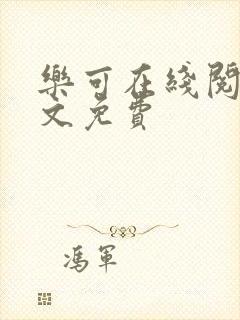 樂可在綫閱
文免費
馮軍